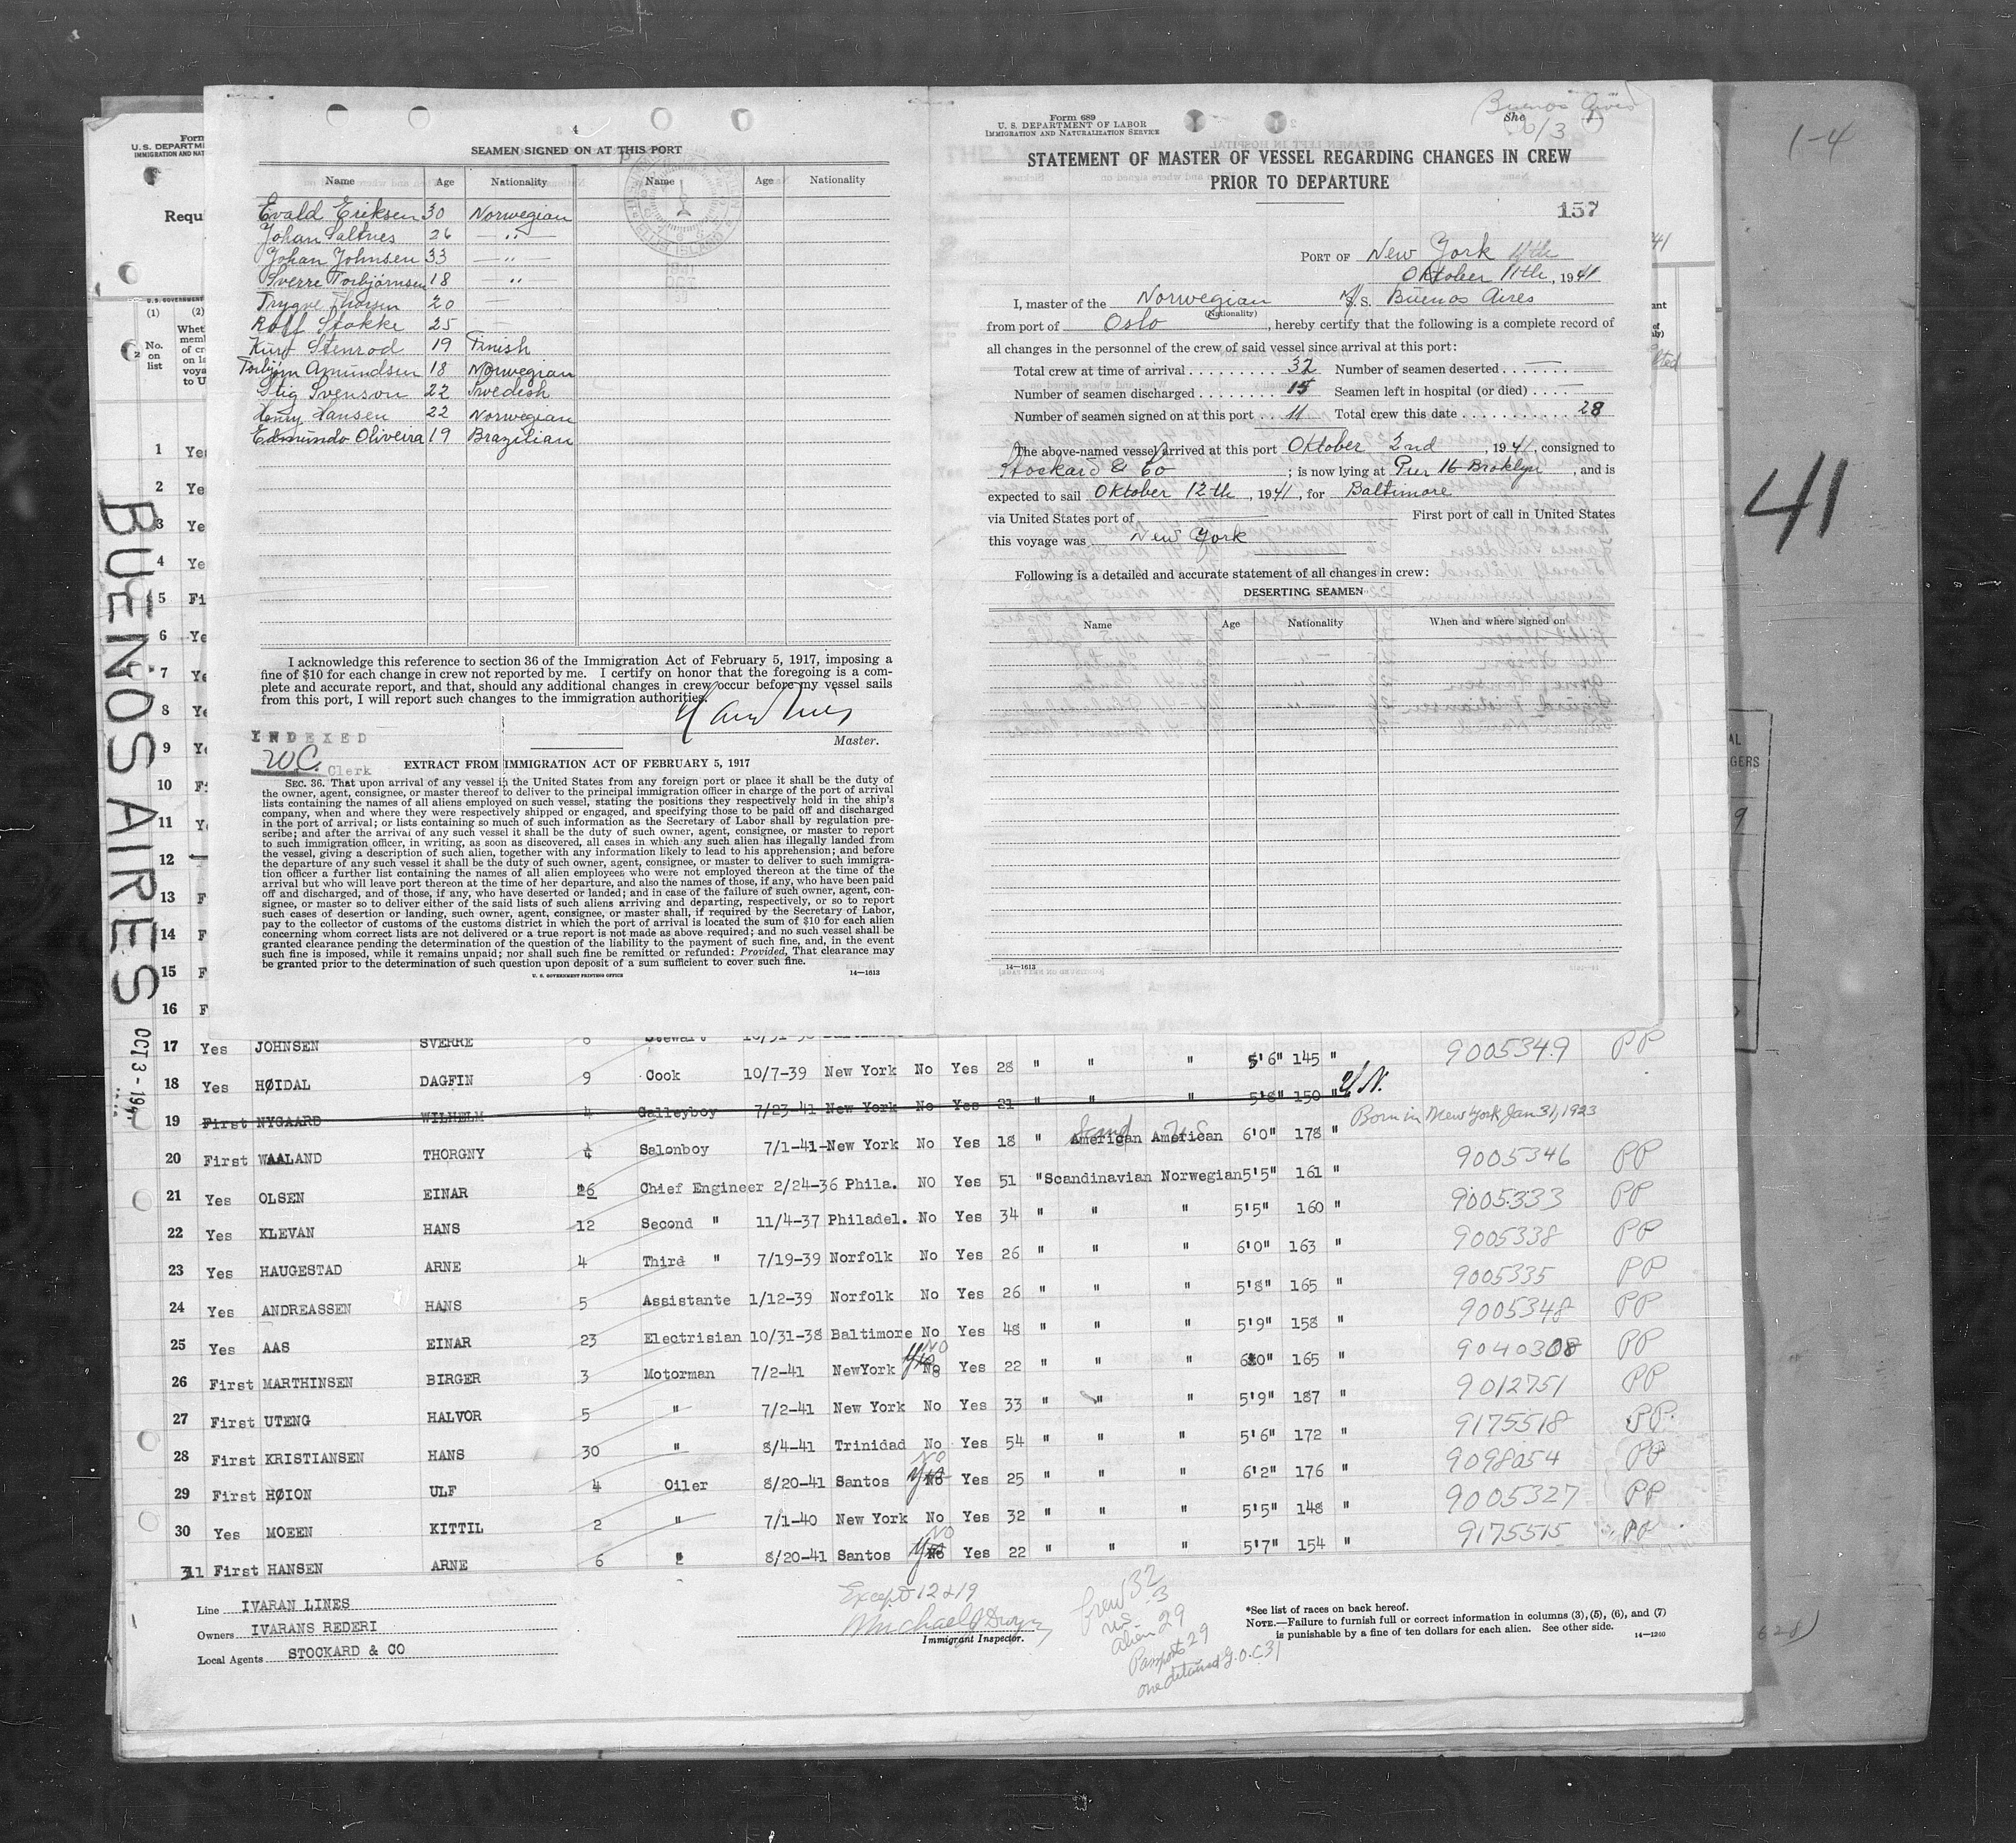 4
SEAMEN SIGNED ON AT THIS PORT
Name Age Nationality Name Age Nationality
Evald Eriksen 30 Norwegian
Johan Saltnes 26 — " —
Johan Johnsen 33 — " —
Sverre Torbjörnsen 18 — " —
Trygve Thorsen 20 —
Rolf Stokke 25 —
Kurt Stenrod 19 Finish
Torbjörn Amundsen 18 Norwegian
Stig Svenson 22 Swedish
Henry Hansen 22 Norwegian
Edmundo Oliveira 19 Brazilian
I acknowledge this reference to section 36 of the Immigration Act of February 5, 1917, imposing a
fine of $10 for each change in crew not reported by me. I certify on honor that the foregoing is a com-
plete and accurate report, and that, should any additional changes in crew occur before my vessel sails
from this port, I will report such changes to the immigration authorities.
Master.
INDEXED
W.C. Clerk
EXTRACT FROM IMMIGRATION ACT OF FEBRUARY 5, 1917
SEC. 36. That upon arrival of any vessel in the United States from any foreign port or place it shall be the duty of
the owner, agent, consignee, or master thereof to deliver to the principal immigration officer in charge of the port of arrival
lists containing the names of all aliens employed on such vessel, stating the positions they respectively hold in the ship's
company, when and where they were respectively shipped or engaged, and specifying those to be paid off and discharged
in the port of arrival; or lists containing so much of such information as the Secretary of Labor shall by regulation pre-
scribe; and after the arrival of any such vessel it shall be the duty of such owner, agent, consignee, or master to report
to such immigration officer, in writing, as soon as discovered, all cases in which any such alien has illegally landed from
the vessel, giving a description of such alien, together with any information likely to lead to his apprehension; and before
the departure of any such vessel it shall be the duty of such owner, agent, consignee, or master to deliver to such immigra-
tion officer a further list containing the names of all alien employees who were not employed thereon at the time of the
arrival but who will leave port thereon at the time of her departure, and also the names of those, if any, who have been paid
off and discharged, and of those, if any, who have deserted or landed; and in case of the failure of such owner, agent, con-
signee, or master so to deliver either of the said lists of such aliens arriving and departing, respectively, or so to report
such cases of desertion or landing, such owner, agent, consignee, or master shall, if required by the Secretary of Labor,
pay to the collector of customs of the customs district in which the port of arrival is located the sum of $10 for each alien
concerning whom correct lists are not delivered or a true report is not made as above required; and no such vessel shall be
granted clearance pending the determination of the question of the liability to the payment of such fine, and, in the event
such fine is imposed, while it remains unpaid; nor shall such fine be remitted or refunded: Provided, That clearance may
be granted prior to the determination of such question upon deposit of a sum sufficient to cover such fine.
U. S. GOVERNMENT PRINTING OFFICE 14—1613
Buenos Aires
She
6/3
Form 689
U. S. DEPARTMENT OF LABOR
IMMIGRATION AND NATURALIZATION SERVICE
STATEMENT OF MASTER OF VESSEL REGARDING CHANGES IN CREW
PRIOR TO DEPARTURE
157
PORT OF New York 11th
Oktober 11th, 1941
I, master of the Norwegian M/S. S. Buenos Aires
(Nationality)
from port of Oslo, hereby certify that the following is a complete record of
all changes in the personnel of the crew of said vessel since arrival at this port:
Total crew at time of arrival 32 Number of seamen deserted —
Number of seamen discharged 15 Seamen left in hospital (or died) —
Number of seamen signed on at this port 11 Total crew this date 28
The above-named vessel arrived at this port Oktober 2nd, 1941, consigned to
Stockard & Co; is now lying at Pier 16 Broklyn, and is
expected to sail Oktober 12th, 1941, for Baltimore
via United States port of — First port of call in United States
this voyage was New York
Following is a detailed and accurate statement of all changes in crew:
DESERTING SEAMEN
Name Age Nationality When and where signed on
14—1613
1-4
41
BUENOS AIRES
OCT 3 - 1941
Form
U. S. DEPARTM
IMMIGRATION AND NA
Requi
(1) (2)
No. on list
1 Yes
2 Ye
3 Ye
4 Ye
5 Fi
6 Ye
7 Ye
8 Ye
9 Ye
10 Fi
11 Ye
12
13 F
14 F
15 F
16 F
17 Yes JOHNSEN SVERRE 8 Stewart 10/31-38 Baltimore
18 Yes HØIDAL DAGFIN 9 Cook 10/7-39 New York No Yes 28 " " " 5'6" 145 " 9005349 PP
19 First NYGAARD WILHELM 4 Galleyboy 7/23-41 New York No Yes 21 " " " 5'8" 150 "
20 First WAALAND THORGNY 4 Salonboy 7/1-41-New York No Yes 18 " American American 6'0" 178 " Born in New York Jan 31, 1923
Scand U.S.
21 Yes OLSEN EINAR 26 Chief Engineer 2/24-36 Phila. NO Yes 51 "Scandinavian Norwegian 5'5" 161 " 9005346 PP
22 Yes KLEVAN HANS 12 Second " 11/4-37 Philadel. No Yes 34 " " " 5'5" 160 " 9005333 PP
23 Yes HAUGESTAD ARNE 4 Third " 7/19-39 Norfolk No Yes 26 " " " 6'0" 163 " 9005338 PP
24 Yes ANDREASSEN HANS 5 Assistante 1/12-39 Norfolk No Yes 26 " " " 5'8" 165 " 9005335 PP
25 Yes AAS EINAR 23 Electrisian 10/31-38 Baltimore No Yes 48 " " " 5'9" 158 " 9005348 PP
26 First MARTHINSEN BIRGER 3 Motorman 7/2-41 NewYork No Yes 22 " " " 6'0" 165 " 9040308 PP
27 First UTENG HALVOR 5 " 7/2-41 New York No Yes 33 " " " 5'9" 187 " 9012751 PP
28 First KRISTIANSEN HANS 30 " 8/4-41 Trinidad No Yes 54 " " " 5'6" 172 " 9175518 PP
29 First HØION ULF 4 Oiler 8/20-41 Santos No Yes 25 " " " 6'2" 176 " 9098054 PP
30 Yes MOEEN KITTIL 2 " 7/1-40 New York No Yes 32 " " " 5'5" 148 " 9005327 PP
31 First HANSEN ARNE 6 " 8/20-41 Santos No Yes 22 " " " 5'7" 154 " 9175515 PP
Line IVARAN LINES
Owners IVARANS REDERI
Local Agents STOCKARD & CO
Except 12 & 19
Immigrant Inspector.
Crew 32
U.S. 3
Alien 29
Passport 29
one detained G.O.C 31
*See list of races on back hereof.
NOTE.—Failure to furnish full or correct information in columns (3), (5), (6), and (7)
is punishable by a fine of ten dollars for each alien. See other side. 14—1240
628)